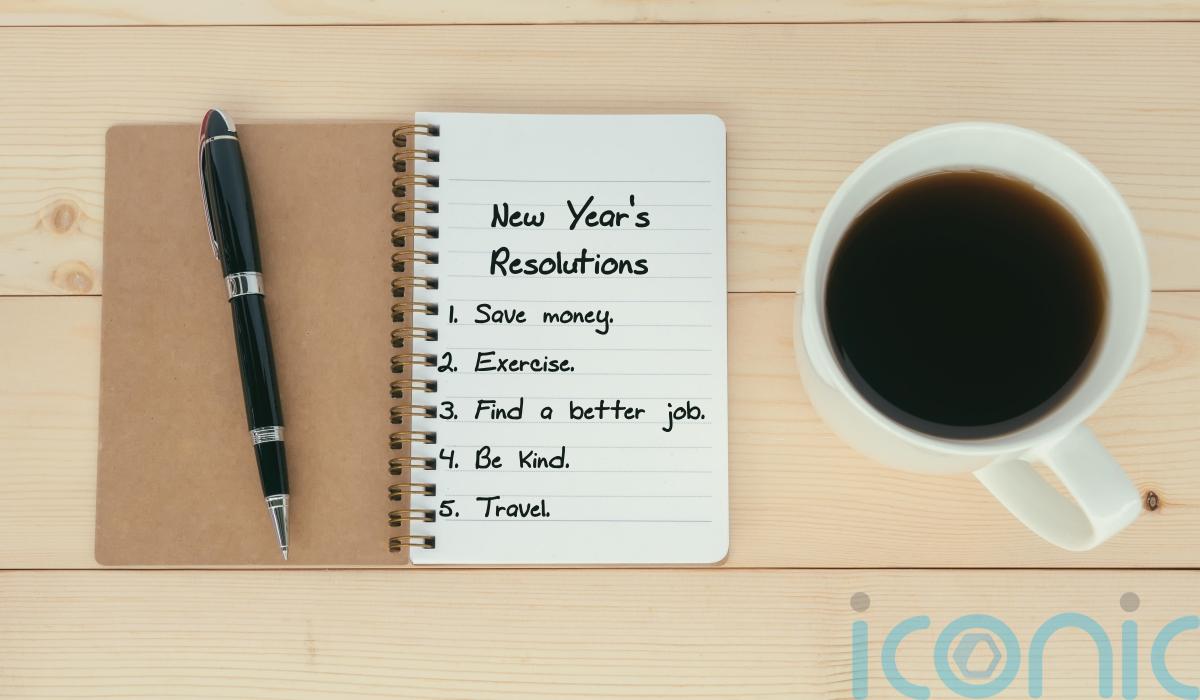 New Year's
Resolutions
1. Save money.
2. Exercise.
3. Find a better job.
4. Be Kind.
5. Travel.
iconic